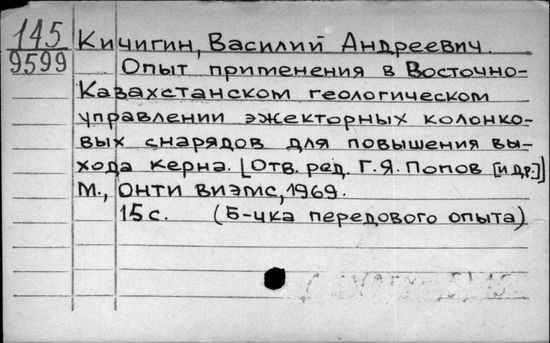 145
9599
Кичигин, Василий Андреевич.
Опыт применения в Восточно-
Казахстанском геологическом
управлении эжекторных колонко-
вых снарядов для повышения вы-
хода керна. [Отв. ред. Г.Я. Попов [и др.]]
М., ОНТИ ВИЭМС, 1969.
15 с. (Б-чка передового опыта)